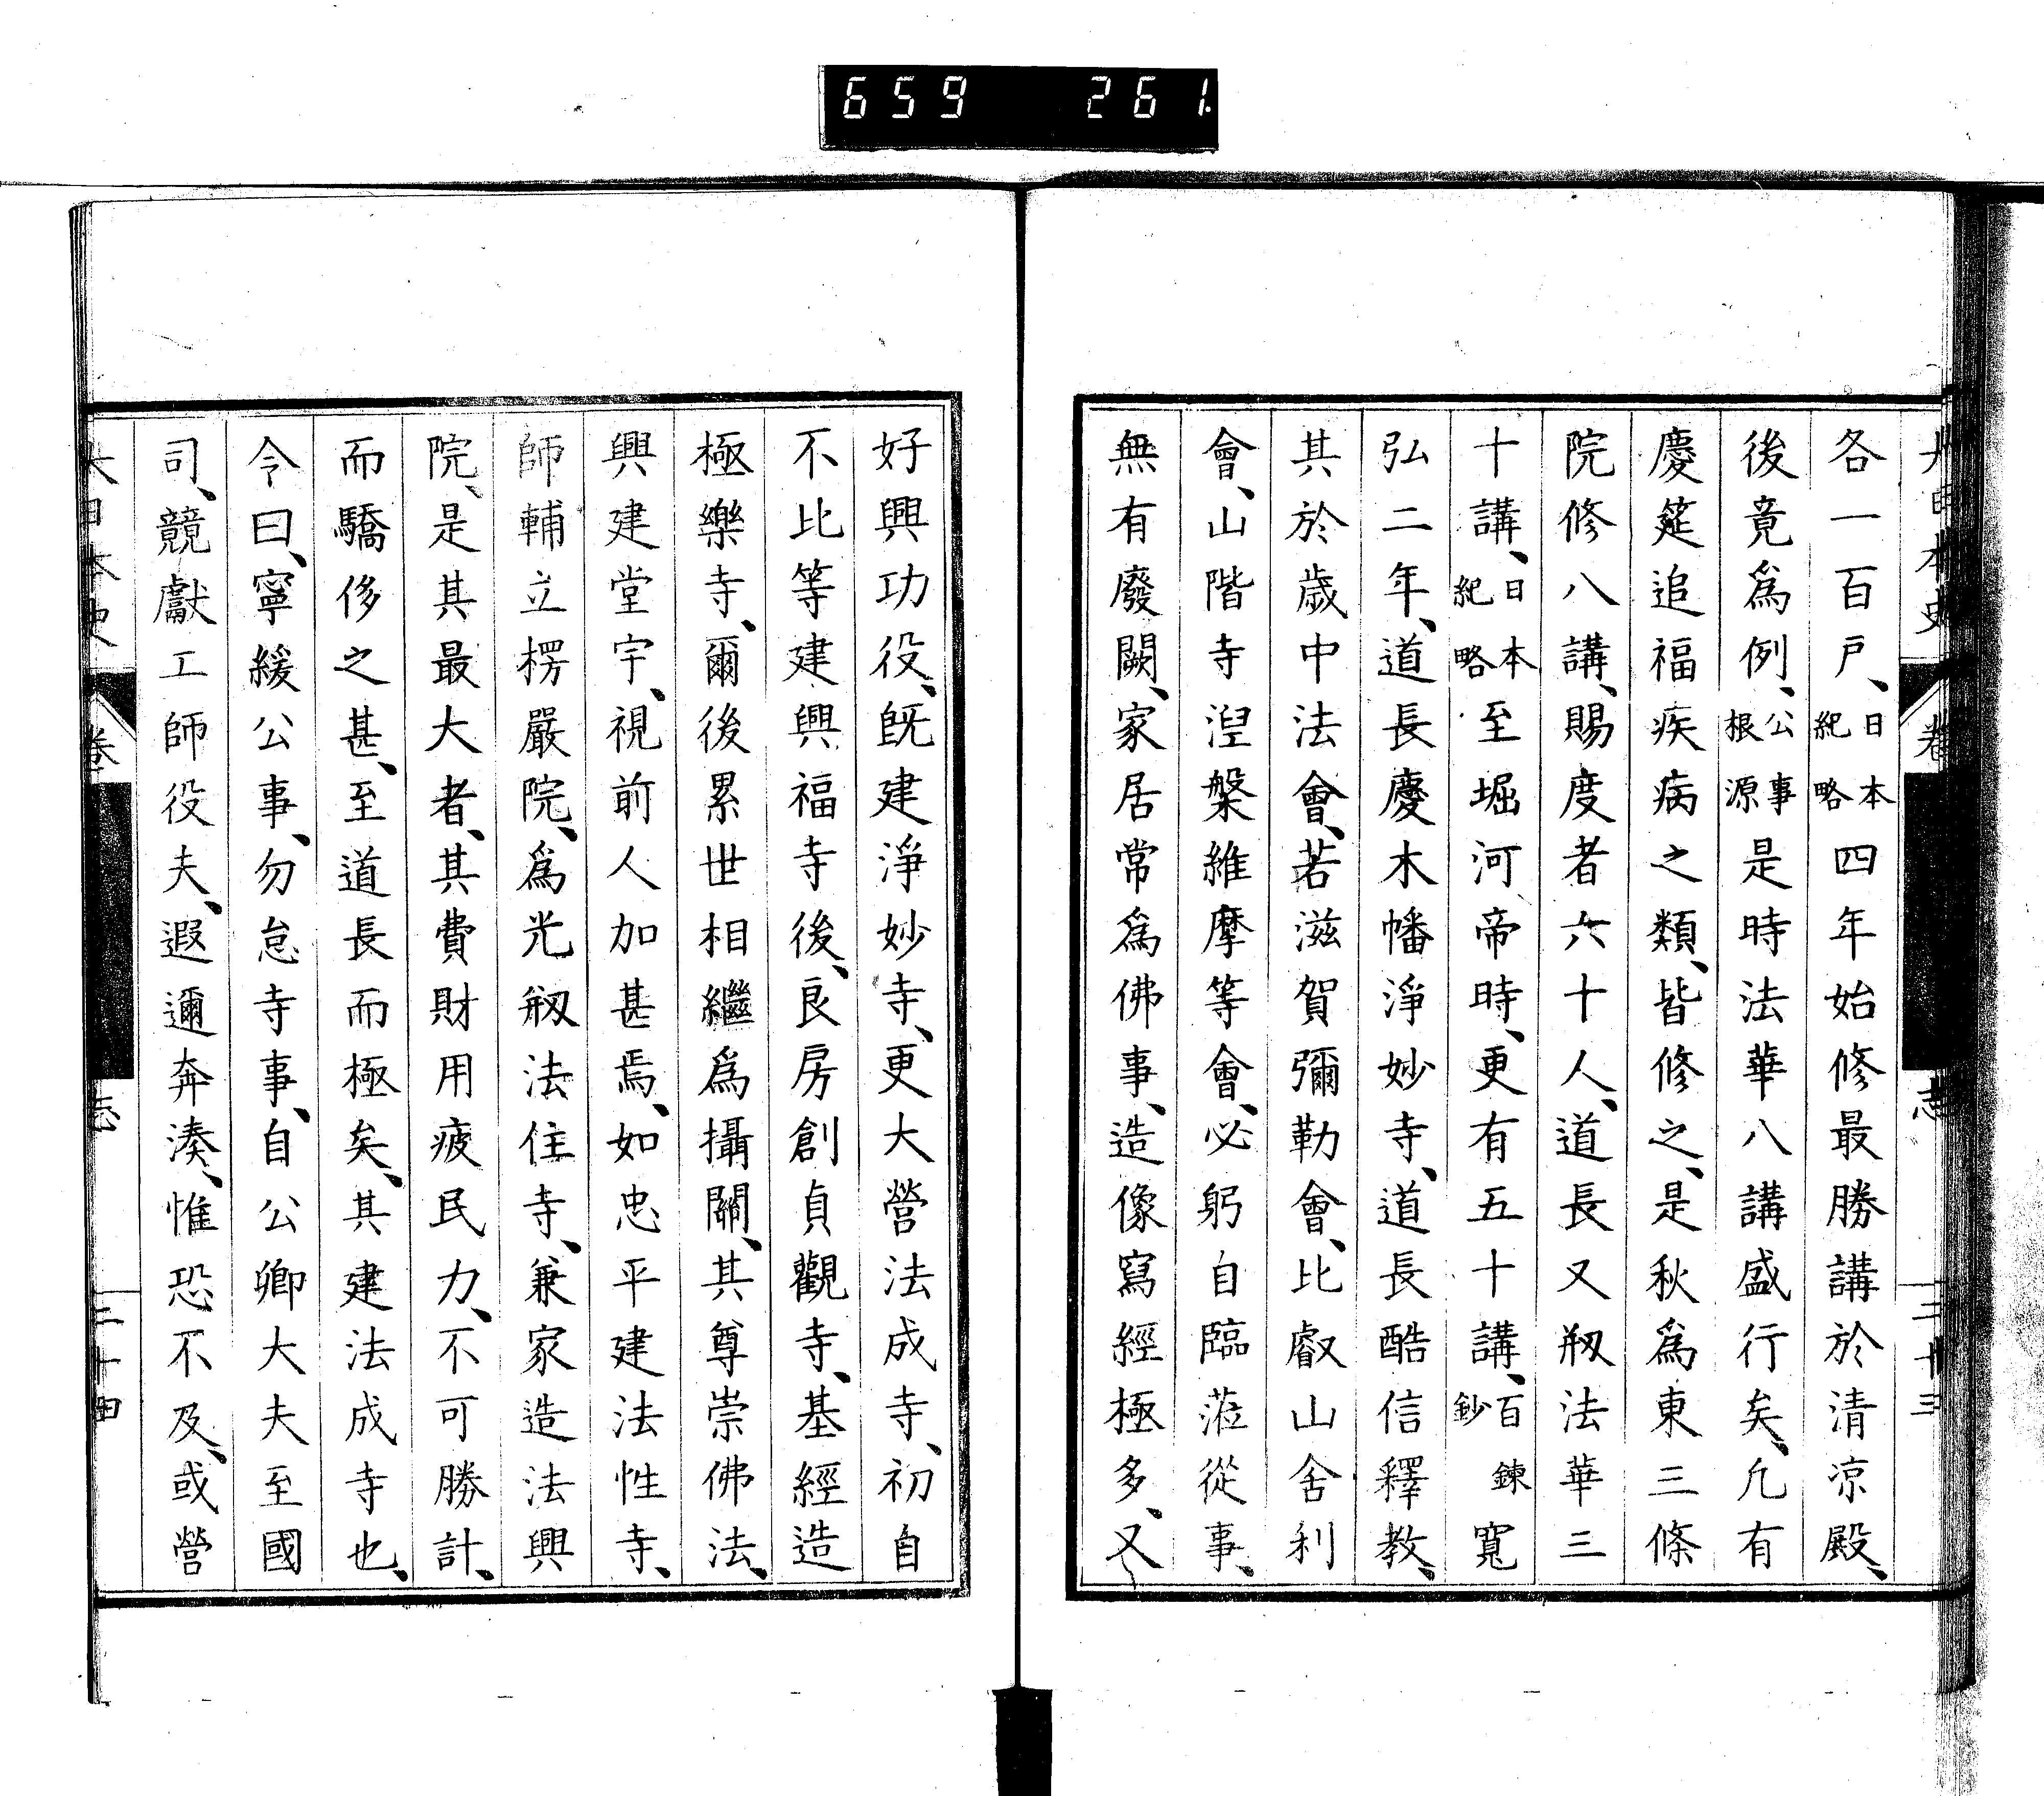 659 261
大日本史 卷 志 三十三
各一百戸、日本紀略四年始修最勝講於清凉殿、
後竟爲例、公事根源是時法華八講盛行矣、凡有
慶筵追福疾病之類、皆修之、是秋爲東三條
院修八講、賜度者六十人、道長又剏法華三
十講、日本紀略至堀河帝時、更有五十講、百鍊鈔寬
弘二年、道長慶木幡淨妙寺、道長酷信釋教、
其於歳中法會、若滋賀彌勒會、比叡山舍利
會、山階寺涅槃維摩等會、必躬自臨蒞從事、
無有廢闕、家居常爲佛事、造像寫經極多、又
好興功役、既建淨妙寺、更大營法成寺、初自
不比等建興福寺後、良房創貞觀寺、基經造
極樂寺、爾後累世相繼爲攝關、其尊崇佛法、
興建堂宇、視前人加甚焉、如忠平建法性寺、
師輔立楞嚴院、爲光剏法住寺、兼家造法興
院、是其最大者、其費財用疲民力、不可勝計、
而驕侈之甚、至道長而極矣、其建法成寺也、
令曰、寧緩公事、勿怠寺事、自公卿大夫至國
司、競獻工師役夫、遐邇奔湊、惟恐不及、或營
大日本史 卷 志 三十四